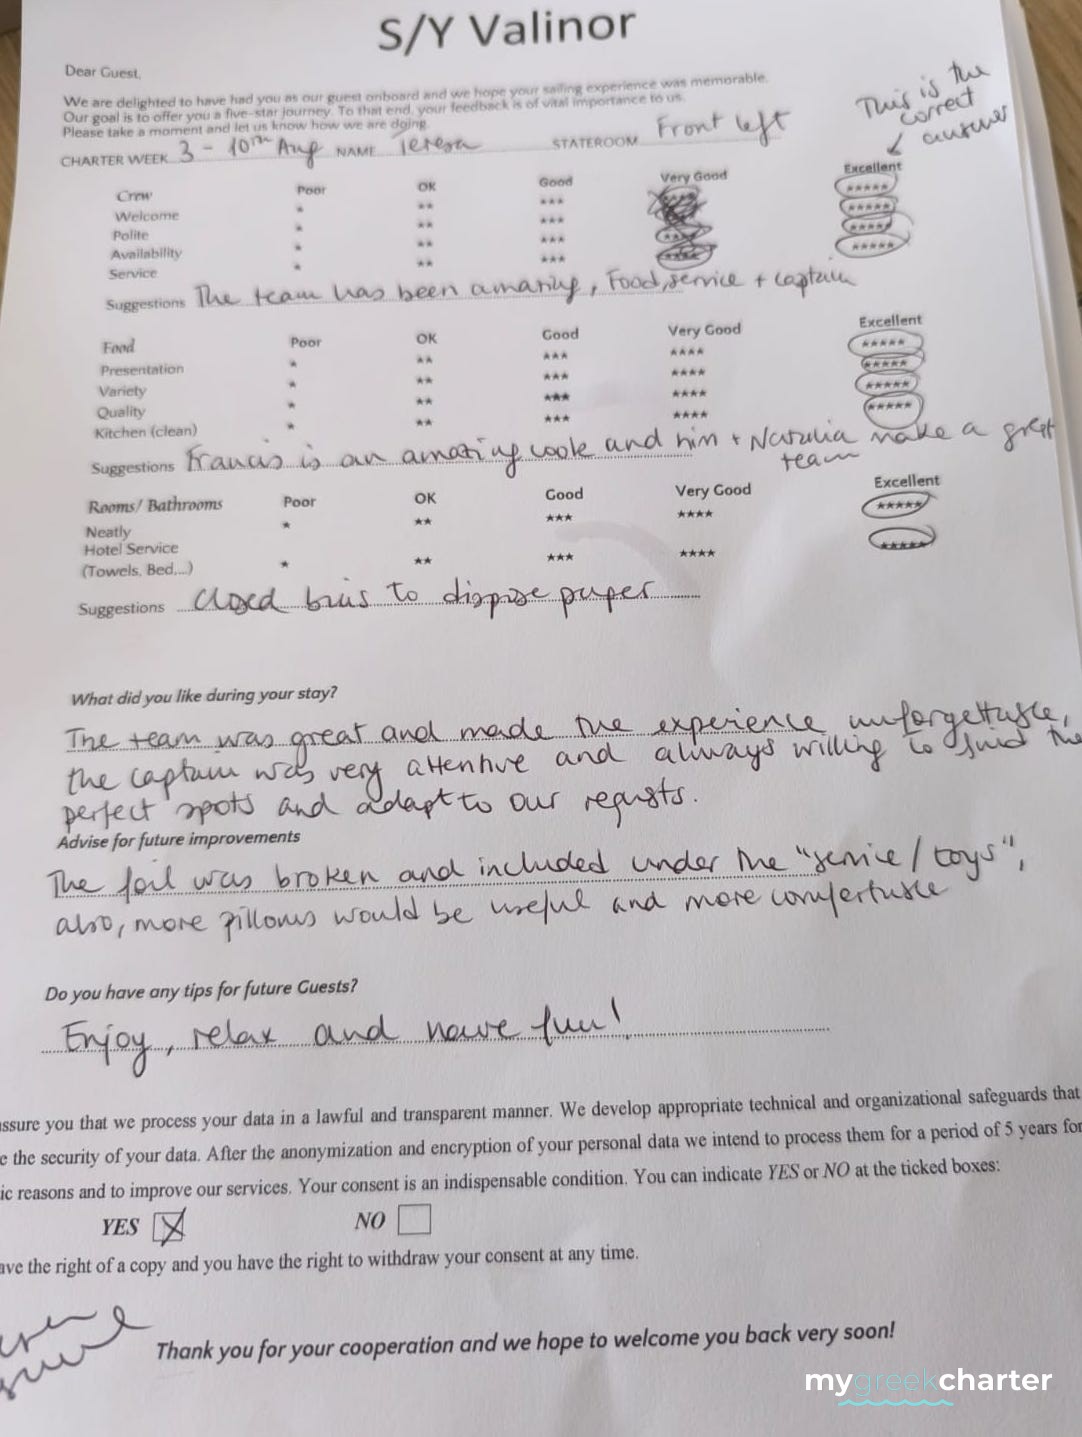 S/Y Valinor
Dear Guest,
We are delighted to have had you as our guest onboard and we hope your sailing experience was memorable.
Our goal is to offer you a five-star journey. To that end, your feedback is of vital importance to us.
Please take a moment and let us know how we are doing.
This is the
correct
answer
CHARTER WEEK 3 - 10th Aug NAME Teresa STATEROOM Front left
Crew Poor OK Good Very Good Excellent
Welcome * ** *** *****
Polite * ** *** *****
Availability * ** *** **** *****
Service * ** *** **** *****
Suggestions The team has been amazing, Food, service + captain
Food Poor OK Good Very Good Excellent
Presentation * ** *** **** *****
Variety * ** *** **** *****
Quality * ** *** **** *****
Kitchen (clean) * ** *** **** *****
Suggestions Francis is an amazing cook and him + Natalia make a great
team
Rooms/ Bathrooms Poor OK Good Very Good Excellent
Neatly * ** *** **** *****
Hotel Service
(Towels, Bed,...) * ** *** **** *****
Suggestions Closed bins to dispose paper
What did you like during your stay?
The team was great and made the experience unforgettable,
the captain was very attentive and always willing to find the
perfect spots and adapt to our requsts.
Advise for future improvements
The foil was broken and included under the "service/toys",
also, more pillows would be useful and more comfertable
Do you have any tips for future Guests?
Enjoy, relax and have fun!
assure you that we process your data in a lawful and transparent manner. We develop appropriate technical and organizational safeguards that
e the security of your data. After the anonymization and encryption of your personal data we intend to process them for a period of 5 years for
ic reasons and to improve our services. Your consent is an indispensable condition. You can indicate YES or NO at the ticked boxes:
YES X NO
ave the right of a copy and you have the right to withdraw your consent at any time.
Thank you for your cooperation and we hope to welcome you back very soon!
mygreekcharter